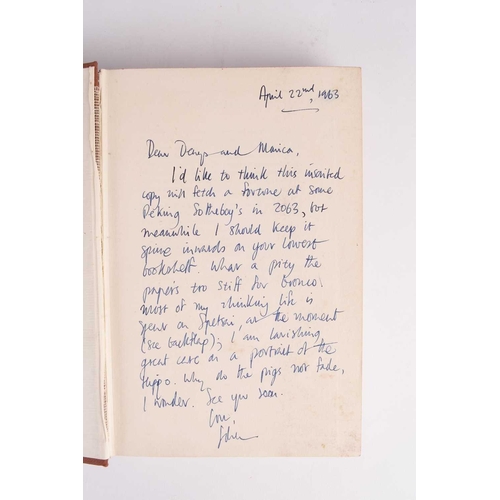 April 22nd, 1963
Dear Denys and Monica,
I'd like to think this inscribed
copy will fetch a fortune at some
Peking Sotheby's in 2063, but
meanwhile I should keep it
spine inwards on your lowest
bookshelf. What a pity the
papers too stiff for Bronco.
Most of my thinking life is
on Spetsai, at the moment
(see backflap); I am lavishing
great care on a portrait of the
hippo. Why do the pigs not fade,
I wonder. See you soon.
Love,
John